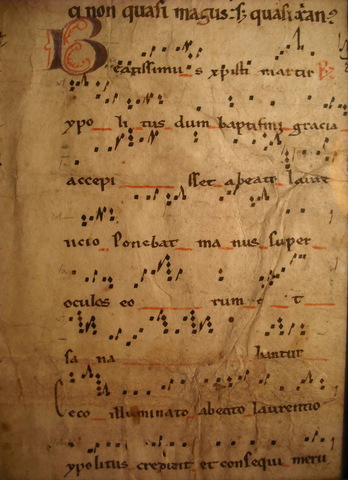 a non quasi magus: s; quasi xan?
Beatissimus xpisti martir R
ypolitus dum baptismi gracia
accepisset a beato laure
ncio Ponebat manus super
oculos eorum et
sanabantur
Ceco illuminato a beato laurentio
ypolitus credidit et consequi meru